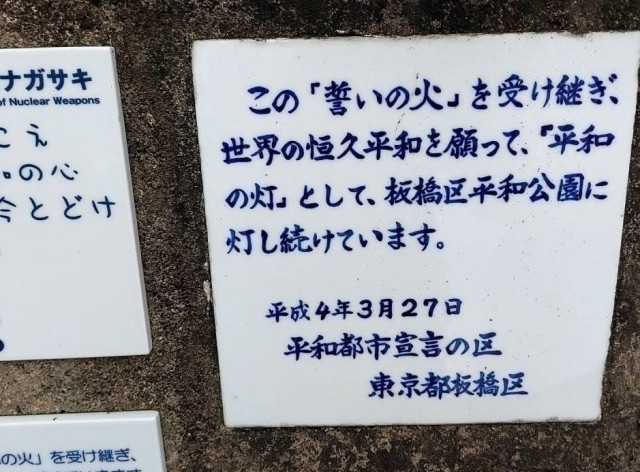 ナガサキ
of Nuclear Weapons
の心
とどけ
この「誓いの火」を受け継ぎ、
世界の恒久平和を願って、「平和
の灯」として、板橋区平和公園に
灯し続けています。
平成4年3月27日
平和都市宣言の区
東京都板橋区
の火」を受け継ぎ、